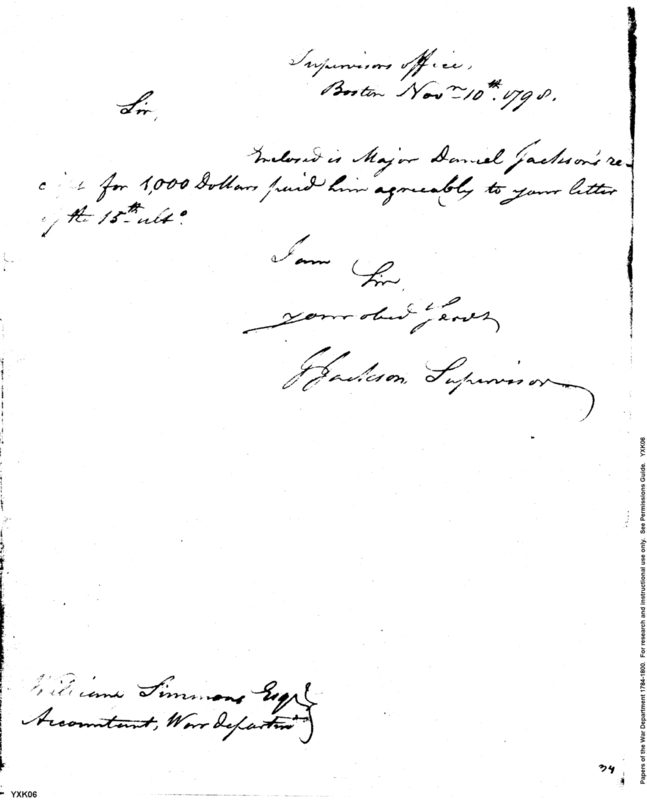 Supervisors office,
Boston Novr. 10th. 1798.
Sir,
Enclosed is Major Daniel Jackson's re-
for 1,000 Dollars paid him agreeably to your letter
of the 15th ulto.
I am
Sir,
your obed Servt
J Jackson Supervisor
William Simmons Esqr
Accountant, War departmt
34
YXK06
Papers of the War Department 1784-1800. For research and instructional use only. See Permissions Guide. YXK06